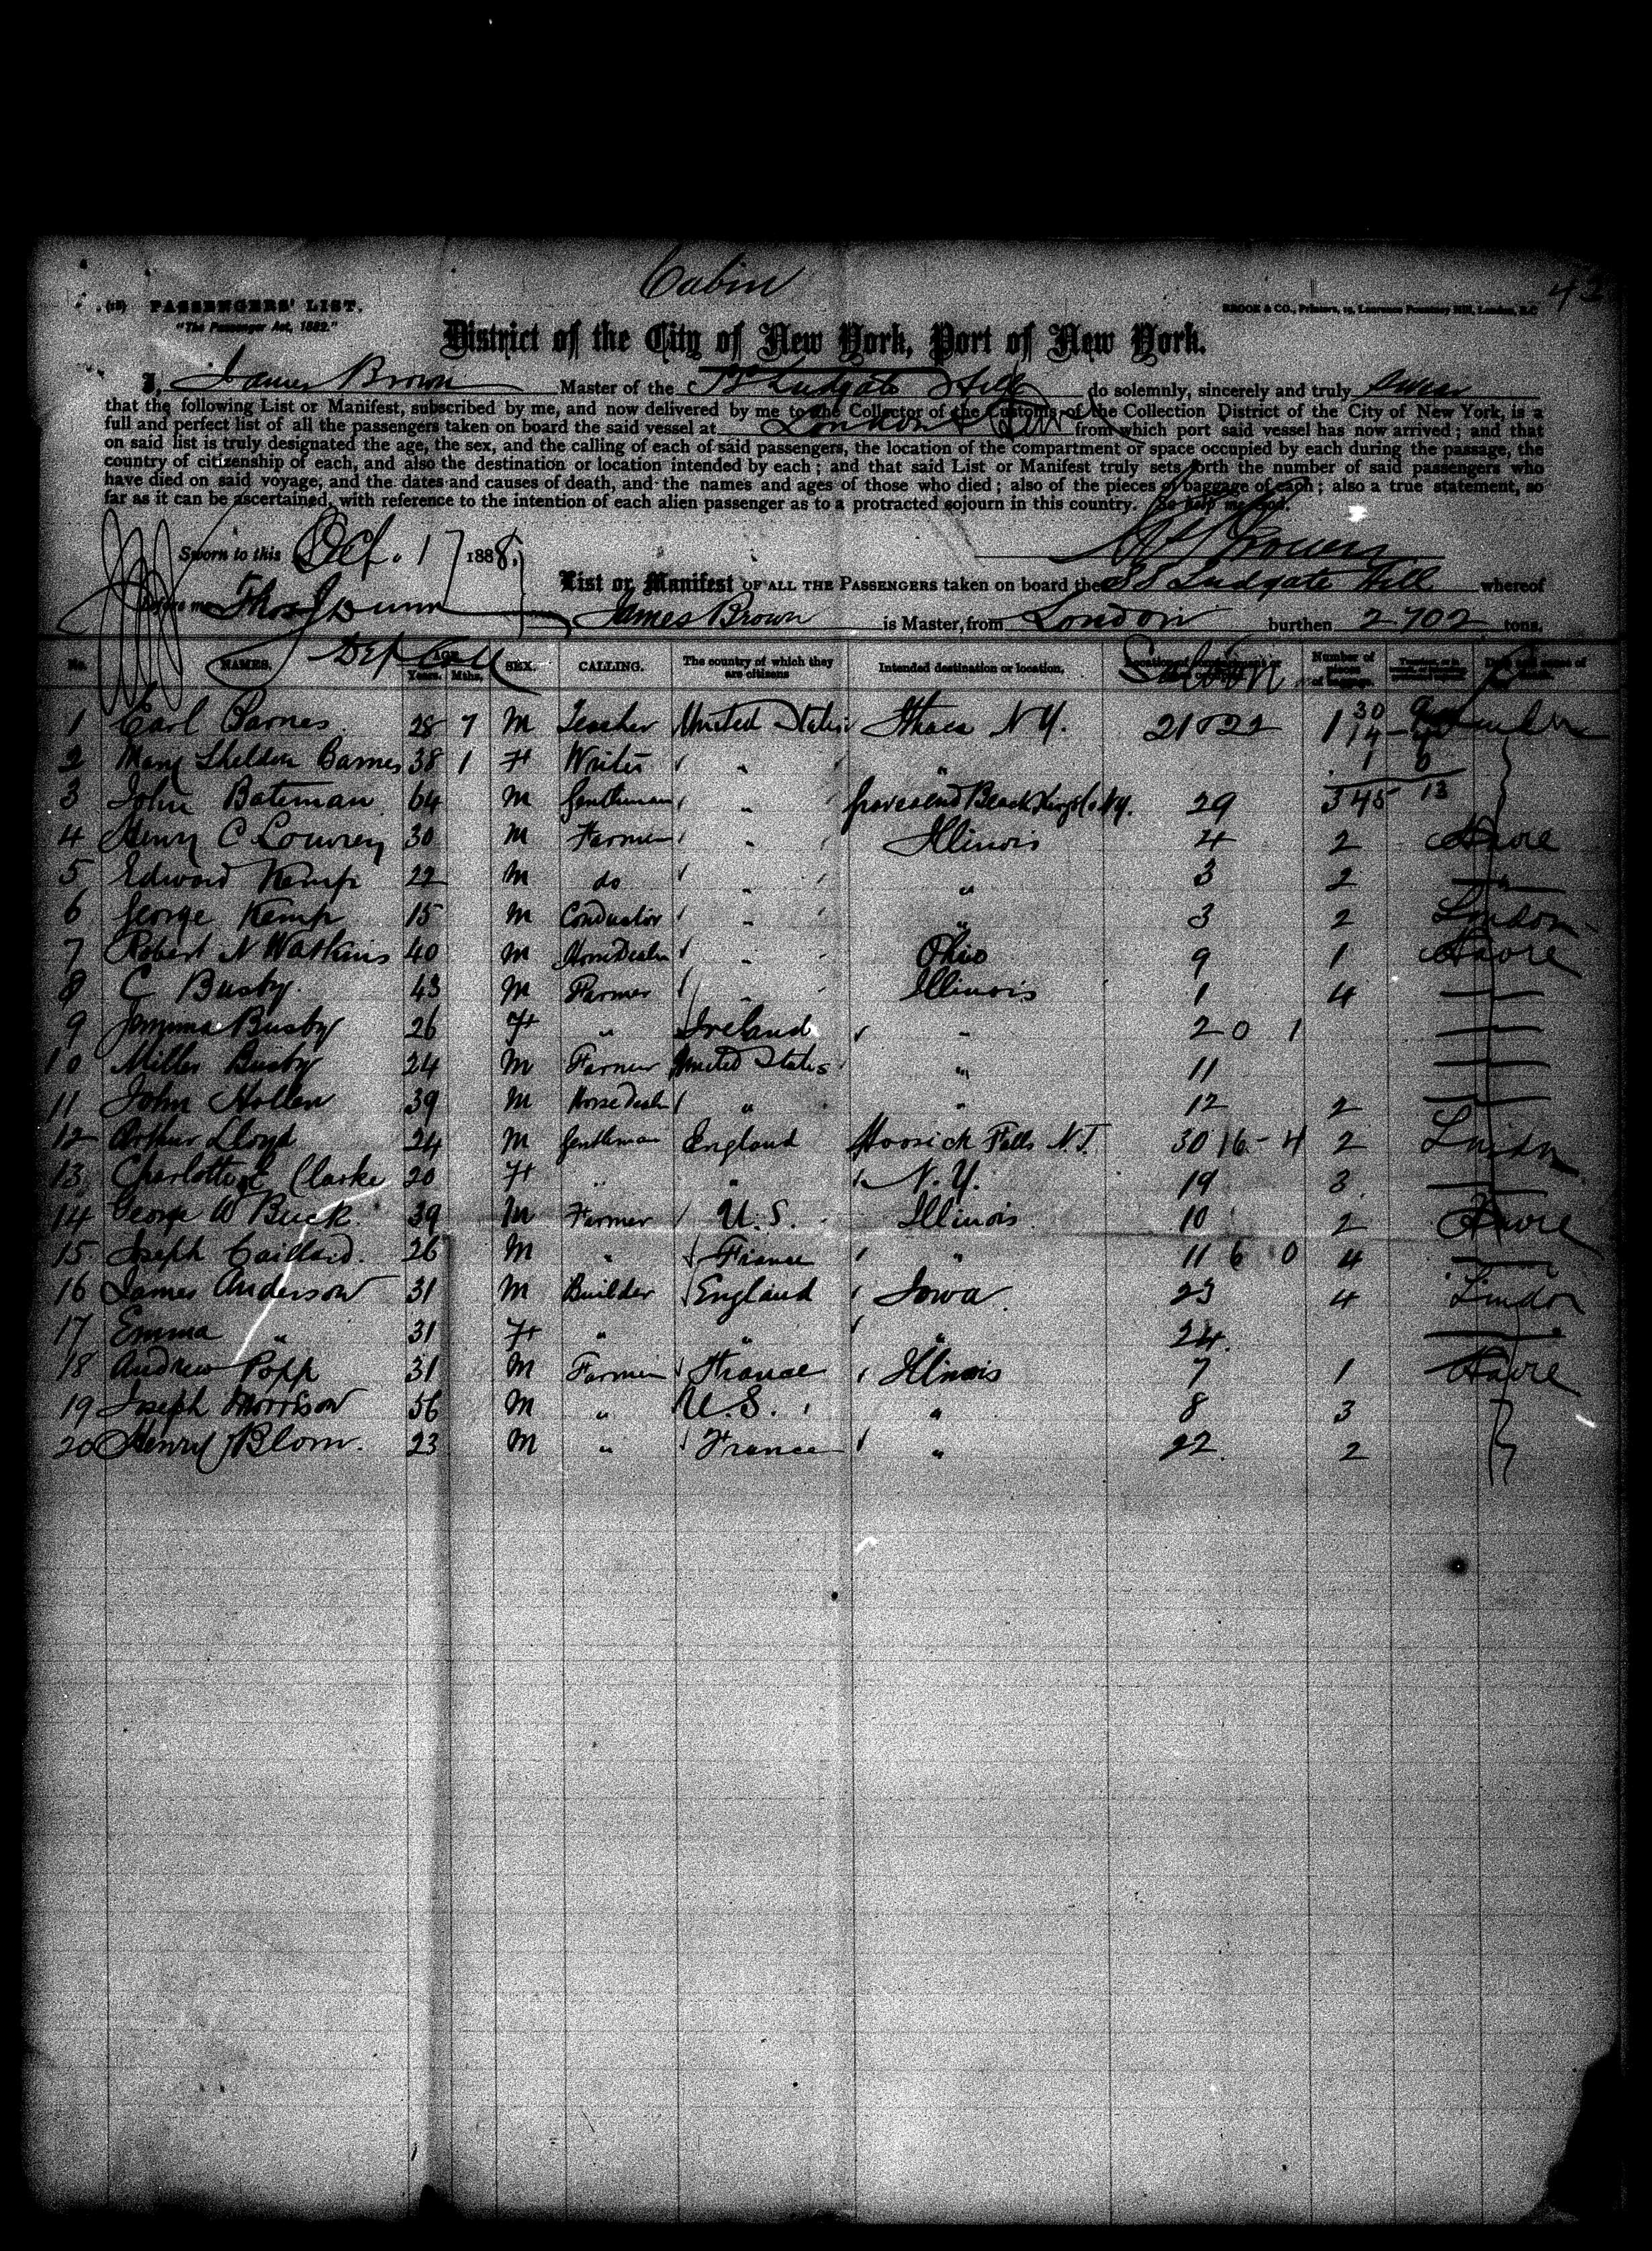 Cabin
42
(18) PASSENGERS' LIST.
"The Passenger Act, 1882."
BROOK & CO., Printers, 19, Laurence Pountney Hill, London, E.C
District of the City of New York, Port of New York.
I, James Brown Master of the Ludgate Hill do solemnly, sincerely and truly swear
that the following List or Manifest, subscribed by me, and now delivered by me to the Collector of the Customs of the Collection District of the City of New York, is a
full and perfect list of all the passengers taken on board the said vessel at London from which port said vessel has now arrived; and that
on said list is truly designated the age, the sex, and the calling of each of said passengers, the location of the compartment or space occupied by each during the passage, the
country of citizenship of each, and also the destination or location intended by each; and that said List or Manifest truly sets forth the number of said passengers who
have died on said voyage, and the dates and causes of death, and the names and ages of those who died; also of the pieces of baggage of each; also a true statement, so
far as it can be ascertained, with reference to the intention of each alien passenger as to a protracted sojourn in this country. So help me God.
Sworn to this 17 1888
Before me Thos J Dunn
Dep Coll
List or Manifest OF ALL THE PASSENGERS taken on board the SS Ludgate Hill whereof
James Brown is Master, from London burthen 2702 tons.
No. NAMES. AGE. Years. Mths. SEX. CALLING. The country of which they are citizens Intended destination or location. Number of pieces of baggage.
1 Earl Barnes 28 7 M Teacher United States Ithaca N.Y. 21 & 22 1
2 Mary Sheldon Barnes 38 1 F Writer " "
3 John Bateman 64 M Gentleman " Gravesend Beach Kings Co NY. 29 3
4 Henry C 30 M Farmer " Illinois 4 2 Havre
5 Edward Kemp 22 M do " " 3 2 "
6 George Kemp 15 M Conductor " " 3 2 London
7 Robert N Watkins 40 M Horse Dealer " Ohio 9 1 Havre
8 C Busby 43 M Farmer " Illinois 1 4 —
9 Busby 26 F " Ireland " 2 0 1 —
10 Miller Busby 24 M Farmer United States " 11 —
11 John Hollen 39 M Horse Dealer " " 12 2 —
12 Arthur Lloyd 24 M Gentleman England Hoosick Falls 30 16-4 2 London
13 Charlotte Clarke 20 F " " N.Y. 19 3 —
14 George W Buck 39 M Farmer U.S. Illinois 10 2 Havre
15 Joseph Caillard. 26 M " France " 11 6 0 4 —
16 James Anderson 31 M Builder England Iowa 23 4 London
17 Emma " 31 F " " " 24. —
18 Andrew Popp 31 M Farmer France Illinois 7 1 Havre
19 Joseph Morrison 56 M " U.S. " 8 3
20 Henry Blom. 23 M " France " 22 2